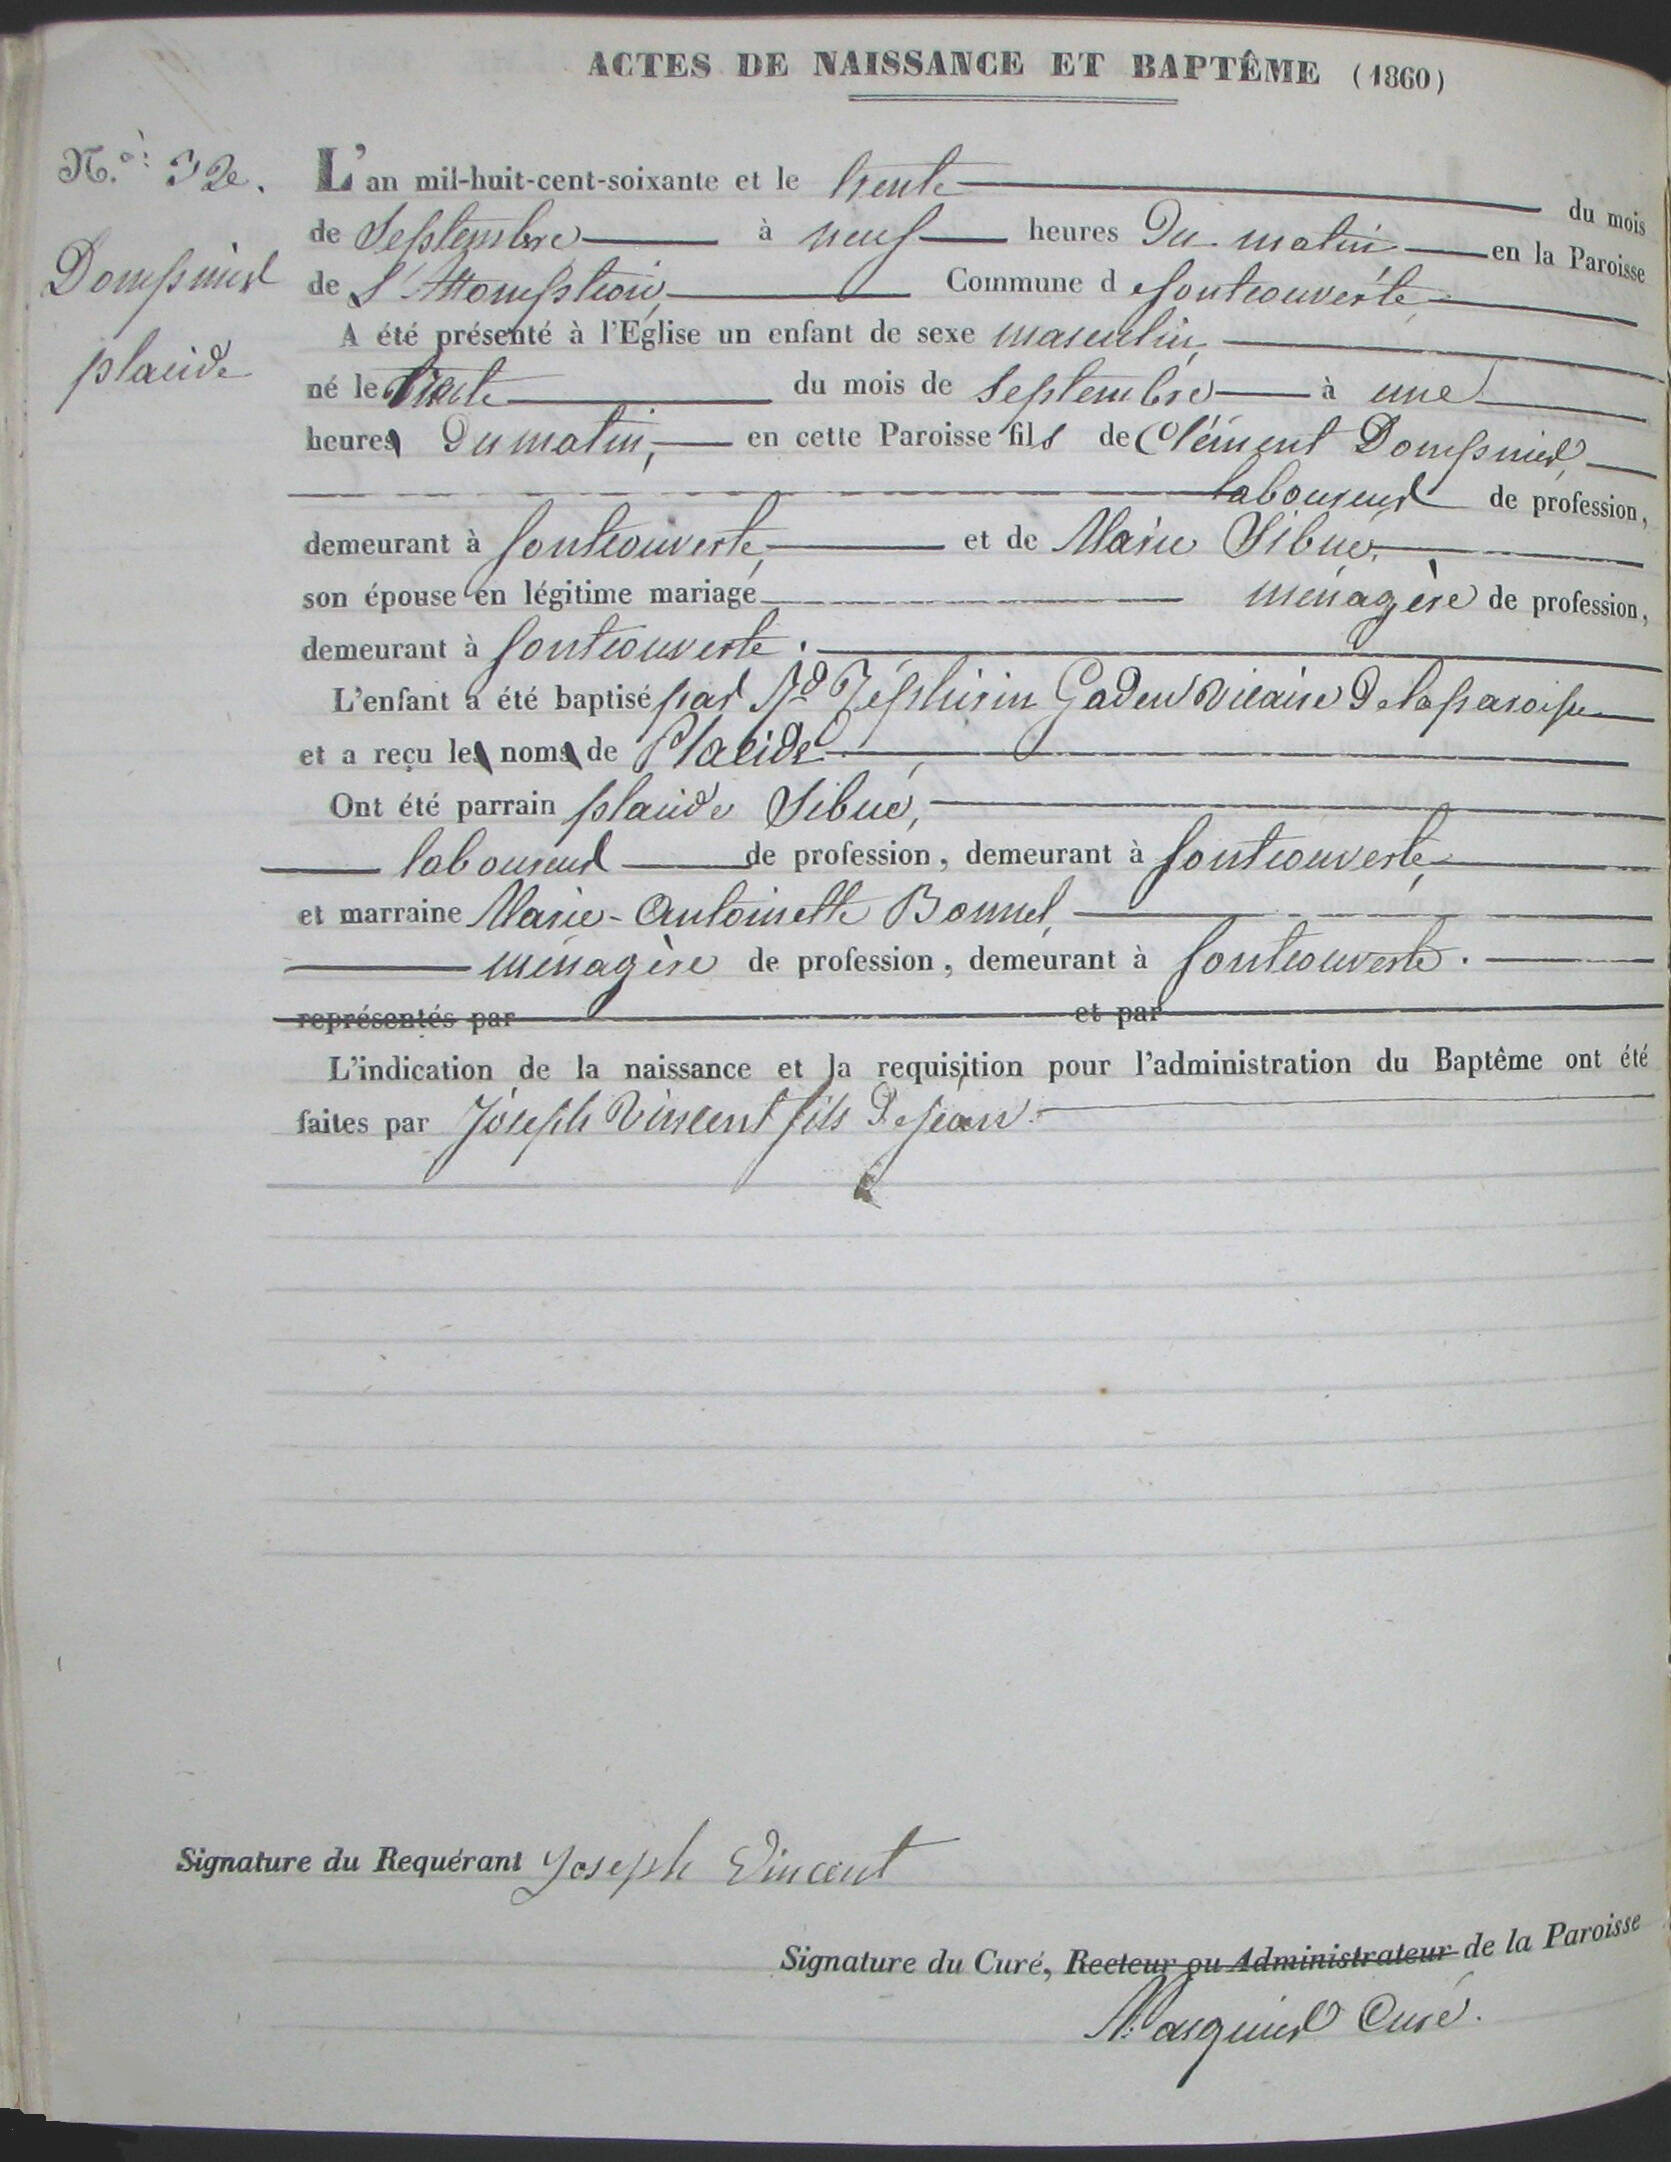 ACTES DE NAISSANCE ET BAPTÊME (1860)
N.o: 32e.
Dompnier
placide
L'an mil-huit-cent-soixante et le trente du mois
de Septembre à neuf heures Du matin en la Paroisse
de L'Assomption, Commune de fontcouverte,
A été présenté à l'Eglise un enfant de sexe masculin,
né le trente du mois de Septembre à une
heures Du matin, en cette Paroisse fils de Clément Dompnier,
laboureur de profession,
demeurant à fontcouverte, et de Marie Sibué,
son épouse en légitime mariage ménagère de profession,
demeurant à fontcouverte.
L'enfant a été baptisé par Rd Zéphirin Vicaire De la paroisse
et a reçu les noms de Placide,
Ont été parrain placide Sibué,
laboureur de profession, demeurant à fontcouverte,
et marraine Marie-Antoinette Bonnel,
ménagère de profession, demeurant à fontcouverte.
représentés par et par
L'indication de la naissance et la requisition pour l'administration du Baptême ont été
faites par Joseph Vincent fils De jean.
Signature du Requérant Joseph Vincent
Signature du Curé, Recteur ou Administrateur de la Paroisse
Curé.